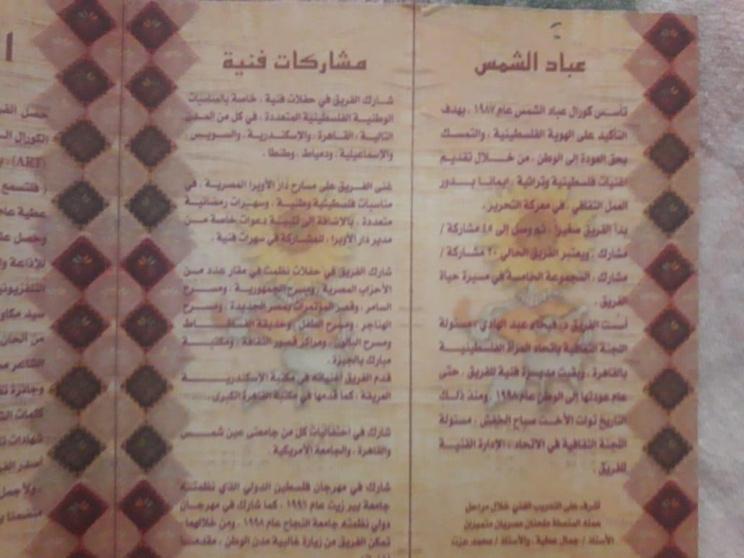 عباد الشمس
تأسس كورال عباد الشمس عام ١٩٨٧ ، بهدف
التأكيد على الهوية الفلسطينية ، والتمسك
بحق العودة إلى الوطن ، من خلال تقديم
أغنيات فلسطينية وتراثية ، إيمانا بدور
العمل الثقافي ، في معركة التحرير .
بدأ الفريق صغيرا ، ثم وصل إلى ٤٨ مشاركة /
مشارك ، ويعتبر الفريق الحالي ٢٠ مشاركة /
مشارك ، المجموعة الخامسة في مسيرة حياة
الفريق .
أسست الفريق د. فيحاء عبد الهادي ، مسئولة
اللجنة الثقافية باتحاد المرأة الفلسطينية
بالقاهرة ، وبقيت مديرة فنية للفريق ، حتى
عام عودتها إلى الوطن عام ١٩٩٨ ، ومنذ ذلك
التاريخ تولت الأخت صباح الخفش ، مسئولة
اللجنة الثقافية في الاتحاد ، الإدارة الفنية
للفريق .
أشرف على التدريب الفني خلال مراحل
عمله المتصلة ملحنان مصريان متميزان
الأستاذ / جمال عطية ، والأستاذ / محمد عزت
مشاركات فنية
شارك الفريق في حفلات فنية ، خاصة بالمناسبات
الوطنية الفلسطينية المتعددة ، في كل من المدن
التالية : القاهرة ، والإسكندرية ، والسويس ،
والإسماعيلية ، ودمياط ، وطنطا .
غنى الفريق على مسارح دار الأوبرا المصرية ، في
مناسبات فلسطينية وطنية ، وسهرات رمضانية
متعددة ، بالإضافة إلى تلبية دعوات خاصة من
مدير دار الأوبرا ، للمشاركة في سهرات فنية .
شارك الفريق في حفلات نظمت في مقار عدد من
الأحزاب المصرية ، ومسرح الجمهورية ، ومسرح
السامر ، وقصر المؤتمرات بمصر الجديدة ، ومسرح
الهناجر ، ومسرح الطفل ، وحديقة الفسطاط
ومسرح البالون ، ومراكز قصور الثقافة ، ومكتبة
مبارك بالجيزة .
قدم الفريق أغنياته في مكتبة الإسكندرية
العريقة ، كما قدمها في مكتبة القاهرة الكبرى .
شارك في احتفاليات كل من جامعتي عين شمس
والقاهرة ، والجامعة الأمريكية .
شارك في مهرجان فلسطين الدولي الذي نظمته
جامعة بير زيت عام ١٩٩٦ ، كما شارك في مهرجان
دولي نظمته جامعة النجاح عام ١٩٩٨ ، ومن خلالهما
تمكن الفريق من زيارة غالبية مدن الوطن ، مقدما
حصل الفر
الكورال ال
(ART) ،
( فلتسمع
عطية عا
وحصل ع
للإذاعة وا
التلفزيون
سيد مكاو
من ألحان
الشاعر مح
وجائزة تق
كلمات الش
شهادات تق
أصدر الفر
، ولأجمل
متضمنا